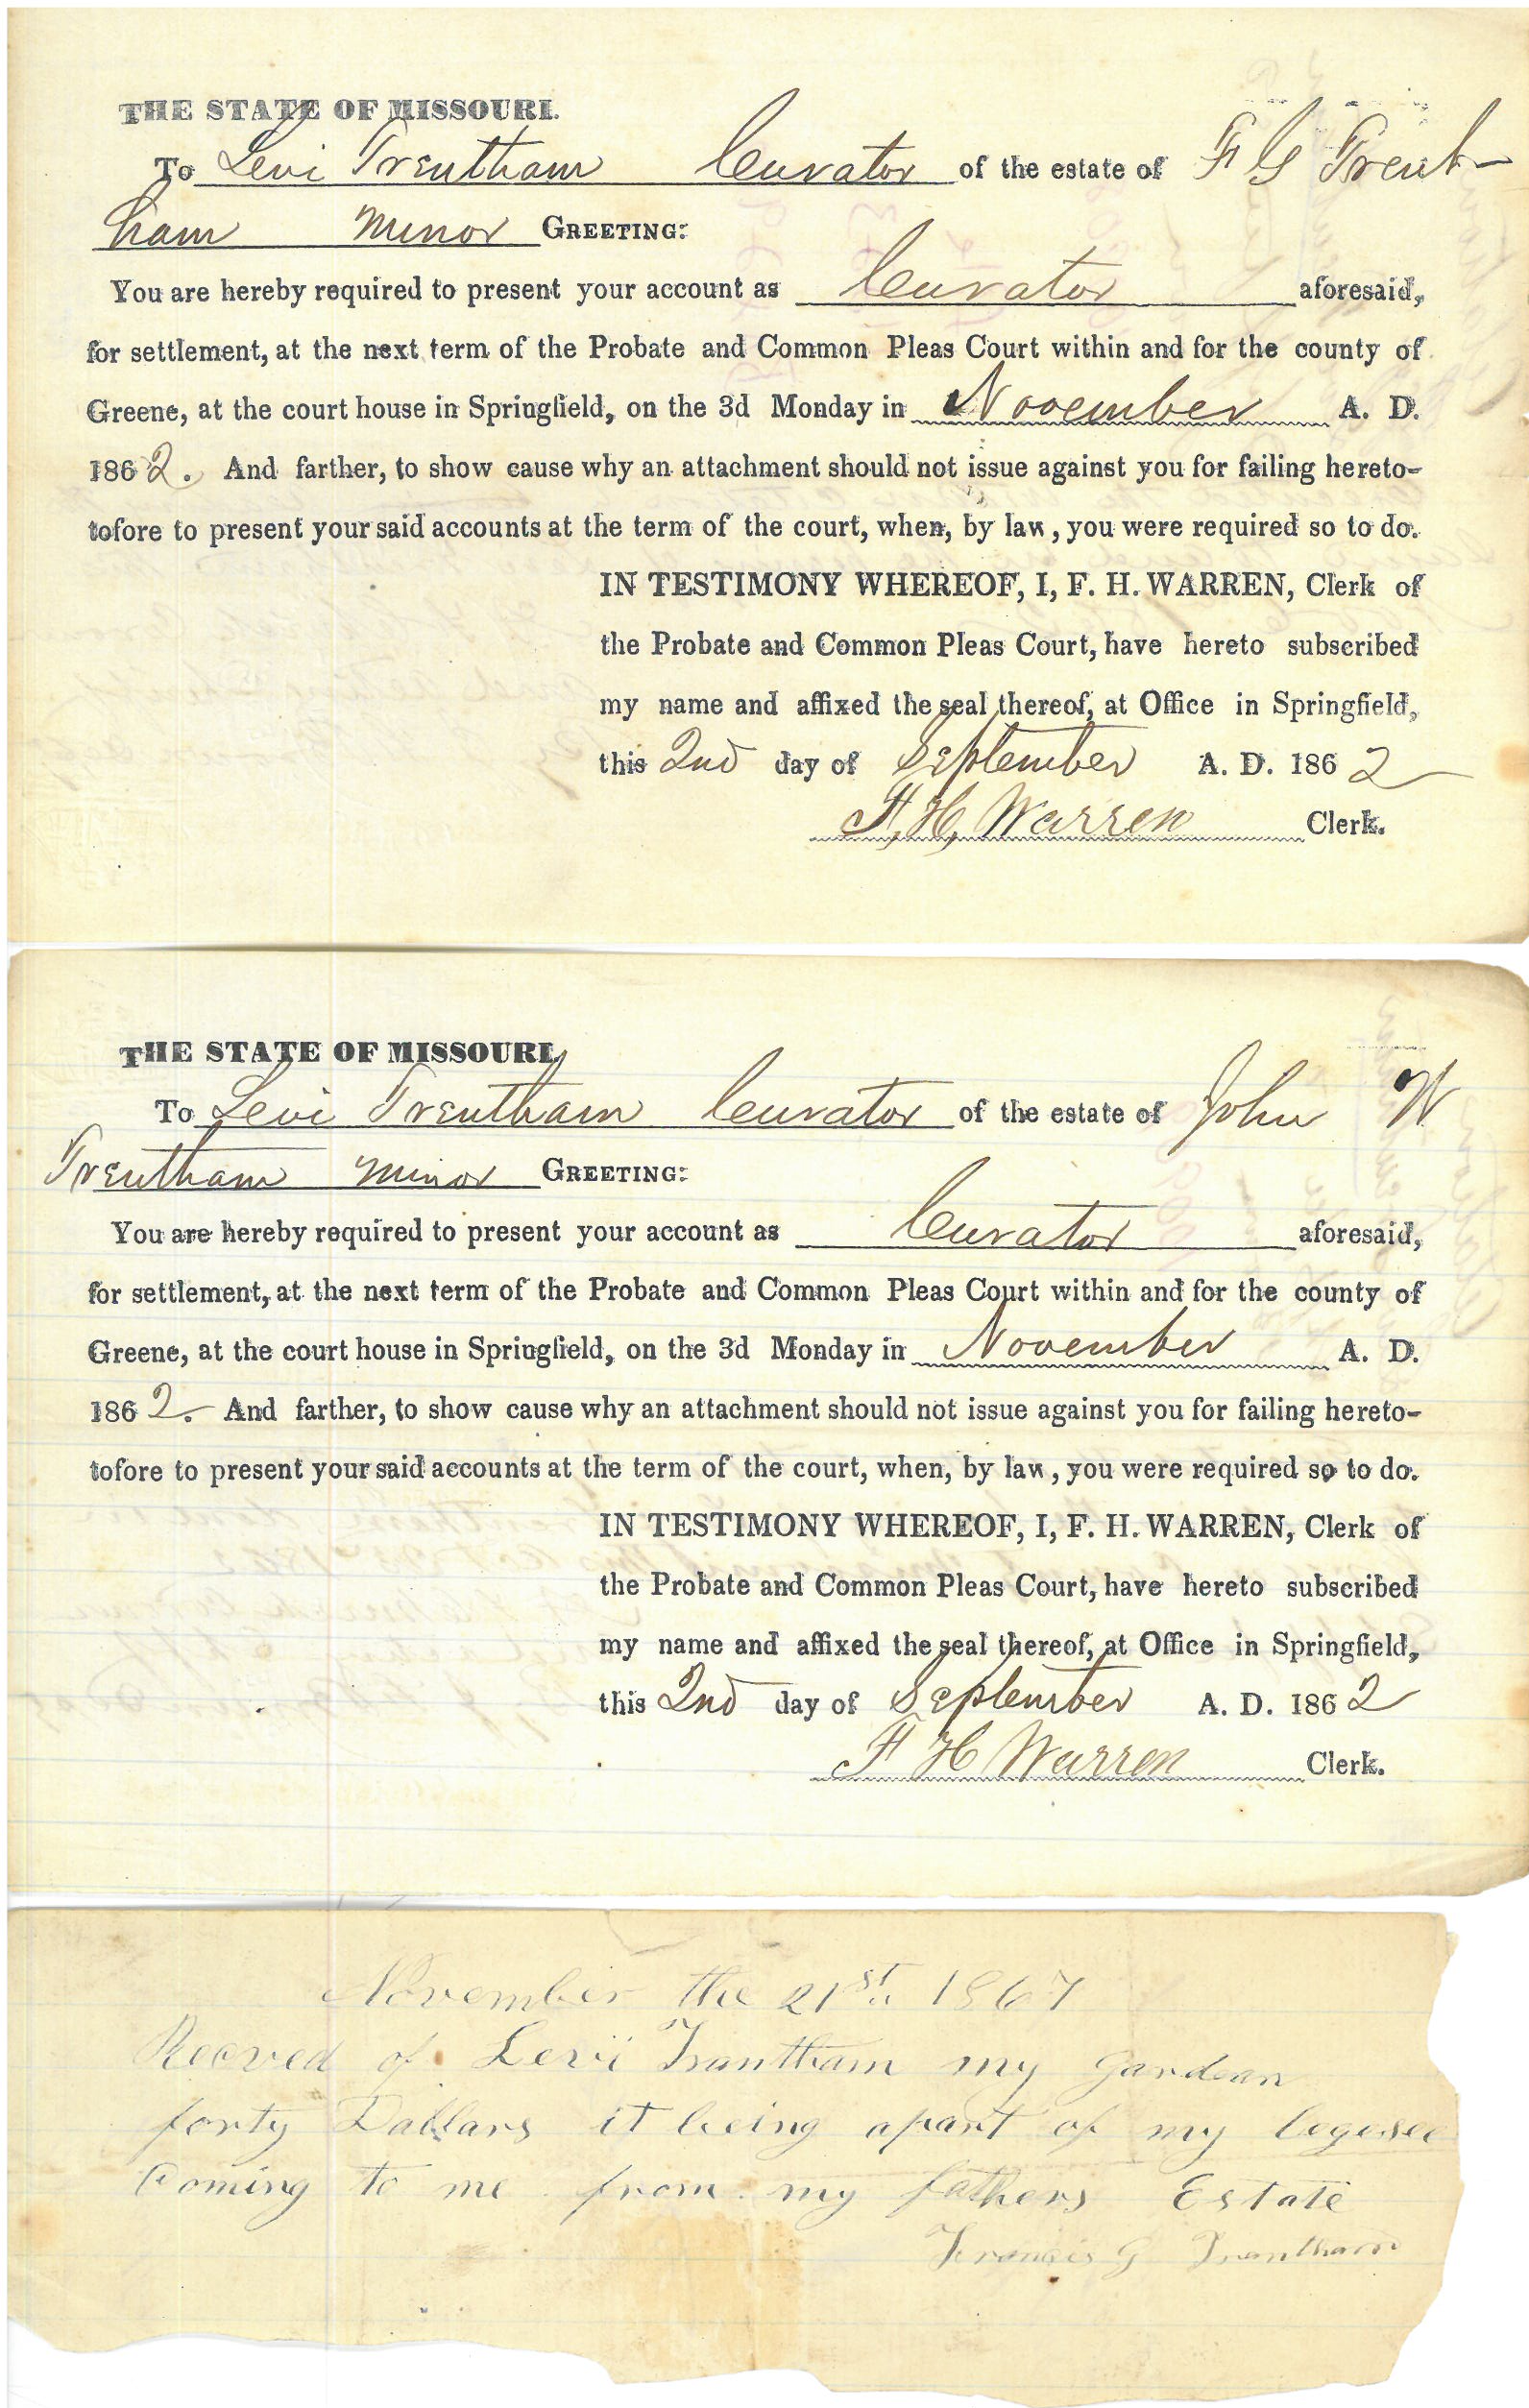 THE STATE OF MISSOURI.
To Levi Trentham Curator of the estate of F G Trent-
ham Minor GREETING:
You are hereby required to present your account as Curator aforesaid,
for settlement, at the next term of the Probate and Common Pleas Court within and for the county of
Greene, at the court house in Springfield, on the 3d Monday in November A. D.
1862. And farther, to show cause why an attachment should not issue against you for failing hereto-
tofore to present your said accounts at the term of the court, when, by law, you were required so to do.
IN TESTIMONY WHEREOF, I, F. H. WARREN, Clerk of
the Probate and Common Pleas Court, have hereto subscribed
my name and affixed the seal thereof, at Office in Springfield,
this 2nd day of September A. D. 1862
F, H, Warren Clerk.
THE STATE OF MISSOURI,
To Levi Trentham Curator of the estate of John W
Trentham Minor GREETING:
You are hereby required to present your account as Curator aforesaid,
for settlement, at the next term of the Probate and Common Pleas Court within and for the county of
Greene, at the court house in Springfield, on the 3d Monday in November A. D.
1862. And farther, to show cause why an attachment should not issue against you for failing hereto-
tofore to present your said accounts at the term of the court, when, by law, you were required so to do.
IN TESTIMONY WHEREOF, I, F. H. WARREN, Clerk of
the Probate and Common Pleas Court, have hereto subscribed
my name and affixed the seal thereof, at Office in Springfield,
this 2nd day of September A. D. 1862
F H Warren Clerk.
November the 21st 1867
Recved of Levi Trantham my gardean
forty Dallars it being apart of my legesee
Coming to me from my fathers Estate
Francis G Trantham